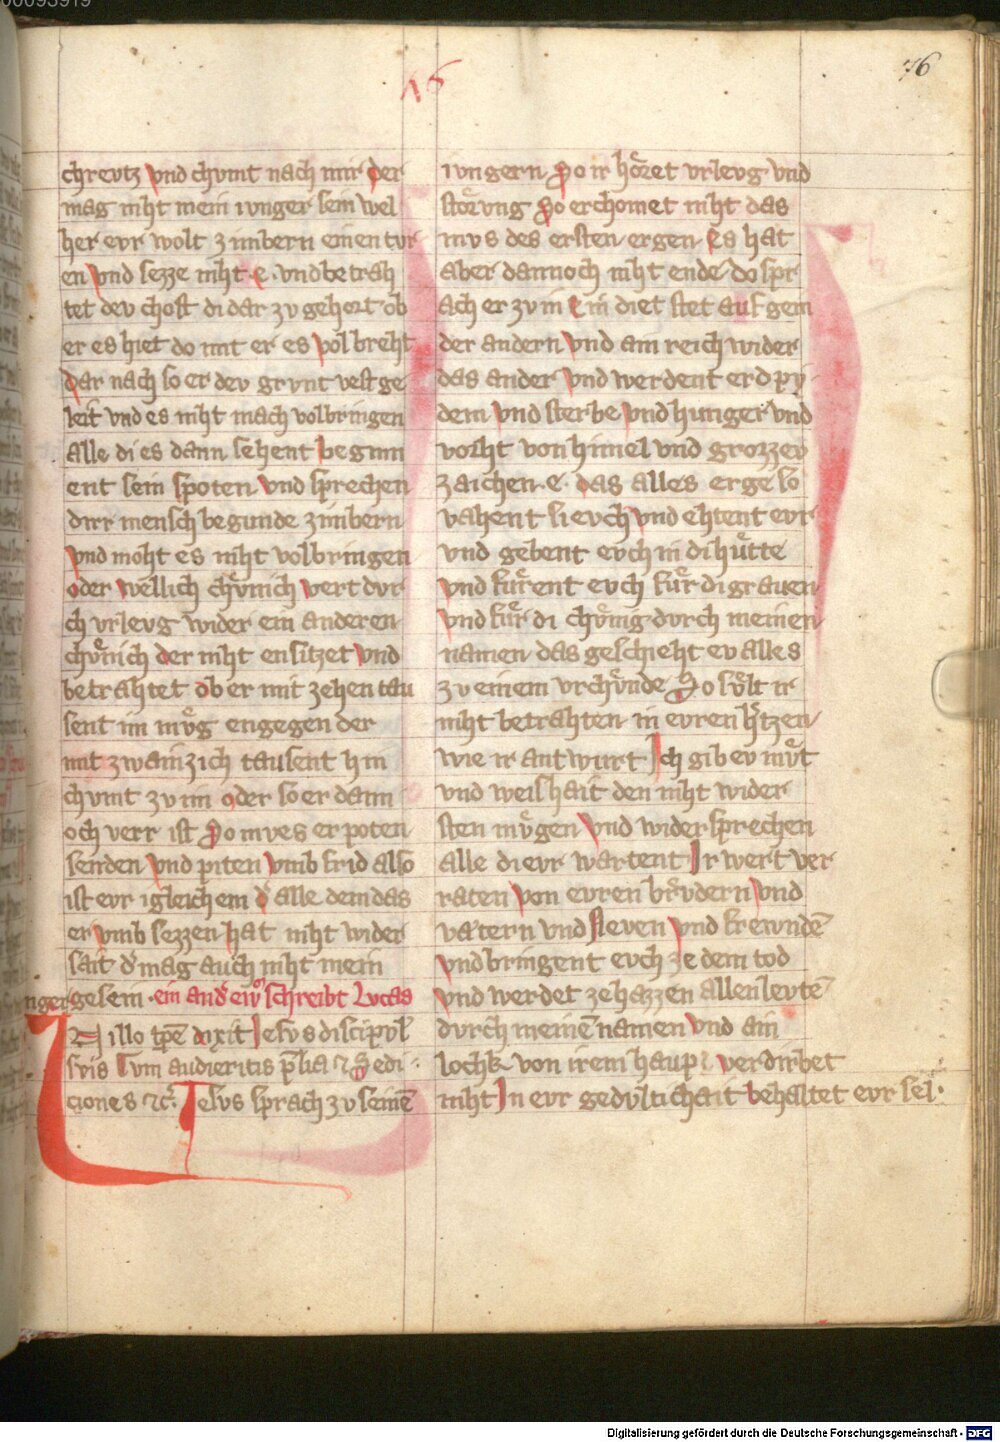 00093919
76
16
chreutz vnd chvmt nach mir der
mag niht mein ivnger sein wel
her evr wolt zimbern einen tvr
en vnd sezze niht .e. vnd betrah
tet dev chost di dar zv gehort ob
er es hiet do mit er es volbreht
dar nach so er dev grvnt vest ge
leit vnd es niht mach volbringen
Alle di es dann sehent begunn
ent sein spoten vnd sprechen
dirr mensch begunde zimbern
vnd moht es niht volbringen
oder wellich chvͤnich vert dvr
ch vrlevg wider ein anderen
chvͤnich der niht ensitzet vnd
betrahtet ob er mit zehen tau
sent im mvͤg engegen der
mit zwainzich tausent hin
chvmt zv im oder so er dann
och verr ist So mves er poten
senden vnd piten vmb frid also
ist evr igleichem d᾽ alle dem das
er vmb sezzen hat niht wider
sait d᾽ mag auch niht mein
nger gesein · ein and᾽ ew᾽ schreibt Lvcas
In illo tp̄e dixit Iesvs discipvl᾽
svis Cvm audieritis p̄lia ⁊ Sedi
ciones ⁊c̄. Iesvs sprach zv seinē
ivngern So ir hoͤret vrlevg vnd
stoͤrvng So erchomet niht das
mvs des ersten ergen Es hat
aber dannoch niht ende do spr
ach er zv in Ein diet stet auf gem
der andern vnd ain reich wider
das ander vnd werdent erdpy
dem vnd sterbe vnd hunger vnd
vorht von himel vnd grozzev
zaichen .e. das alles erge so
vahent si evch vnd ehtent evr
vnd gebent evch in di huͤtte
vnd fuͤrent evch fuͤr di graven
vnd fuͤr di chvͤnig dvrch meinen
namen das geschieht ev alles
zv einem vrchvͤnde So svͤlt ir
niht betrahten in evren h᾽tzen
wie ir antwurt Ich gib ev mvͤt
vnd weishait den niht wider
sten mvͤgen vnd widersprechen
alle di evr wartent Ir wert ver
raten von evren brvͤdern vnd
vatern vnd neven vnd frewndē
vnd bringent evch ze dem tod
vnd werdet ze hazzen allen levtē
dvrch meinē namen vnd ain
lochk von irem haupt verdirbet
niht In evr gedvltichait behaltet evr sel·
Digitalisierung gefördert durch die Deutsche Forschungsgemeinschaft - DFG